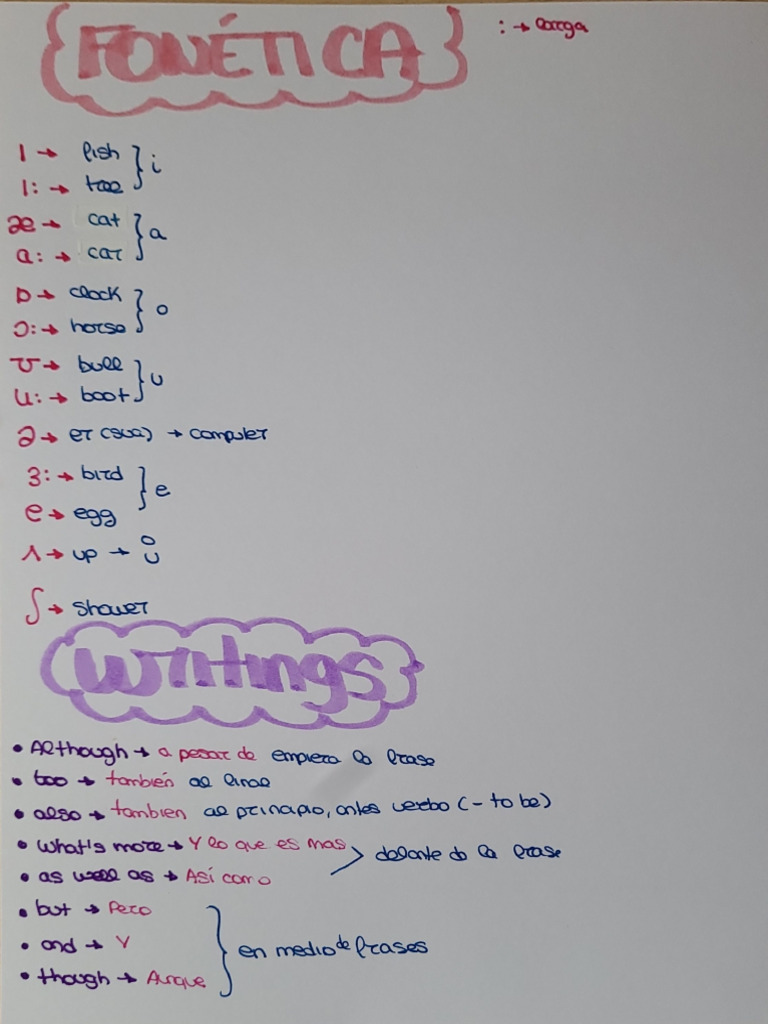 FONÉTICA
: → larga
I → fish } i
I: → tree
æ → cat } a
ɑ: → car
ɒ → clock } o
ɔ: → horse
ʊ → bull } u
u: → boot
ə → er (sua) → computer
3: → bird } e
e → egg
ʌ → up → o u
ʃ → shower
Writings
• Although → a pesar de empieza la frase
• too → también al final
• also → tambien al principio, antes verbo (- to be)
• What's more → Y lo que es mas
> delante de la frase
• as well as → Así como
• but → Pero
• and → Y } en medio de frases
• though → Aunque